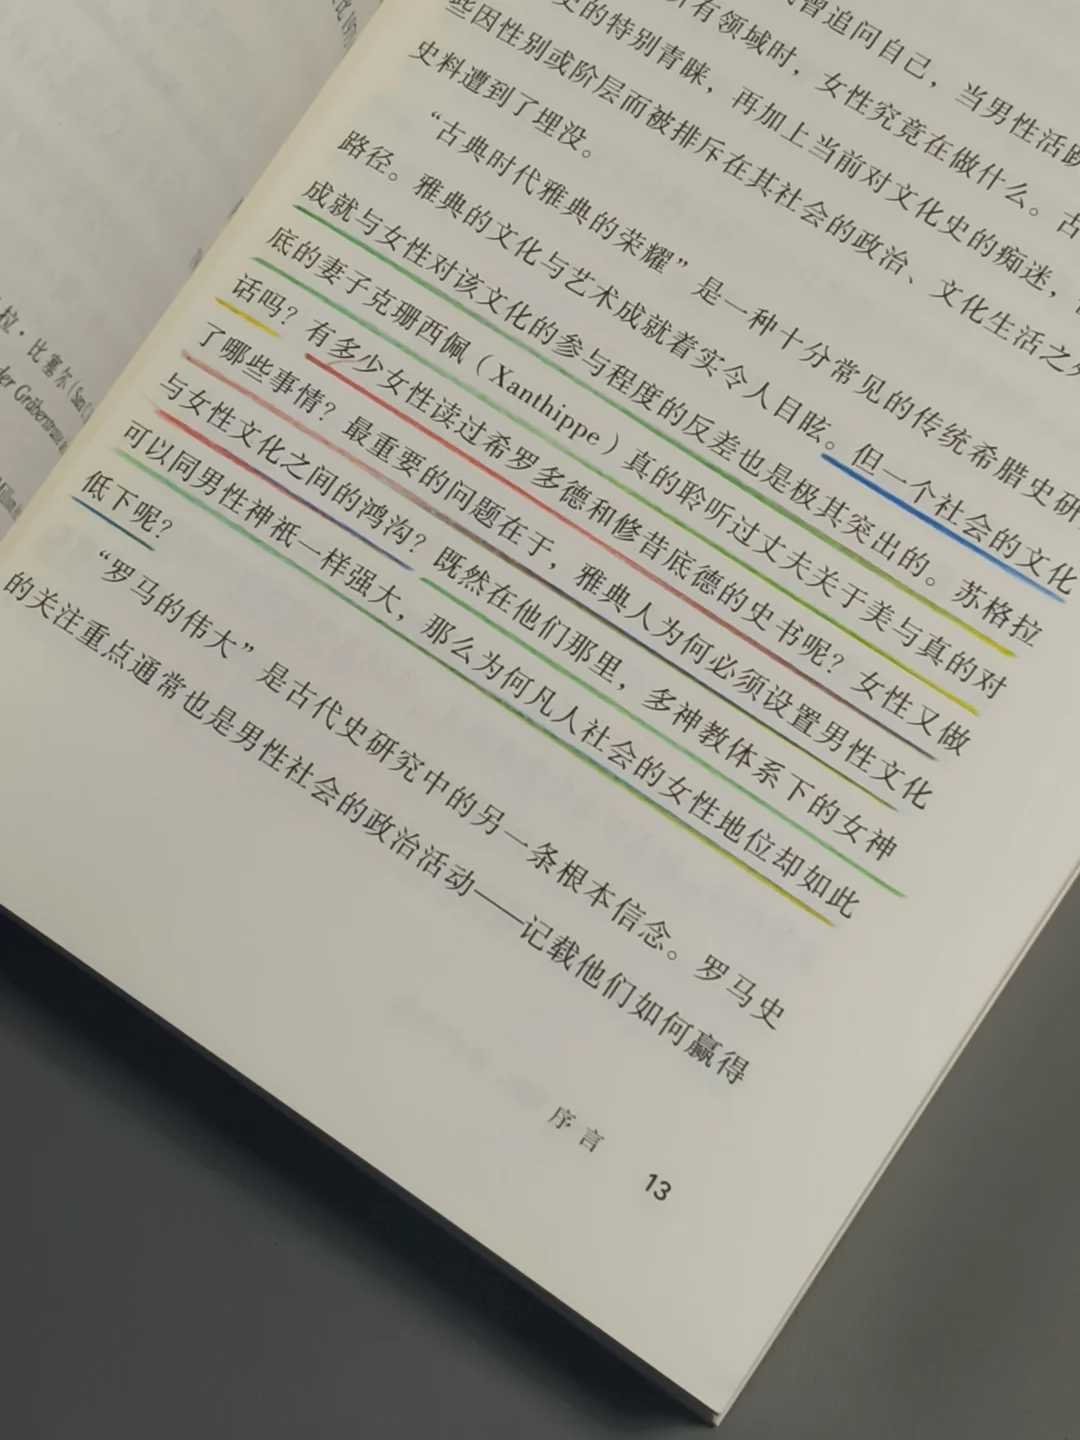 曾追问自己，当男性活跃
所有领域时，女性究竟在做什么。古
史的特别青睐，再加上当前对文化史的痴迷，
些因性别或阶层而被排斥在其社会的政治、文化生活之外
史料遭到了埋没。
“古典时代雅典的荣耀”是一种十分常见的传统希腊史研
路径。雅典的文化与艺术成就着实令人目眩。但一个社会的文化
成就与女性对该文化的参与程度的反差也是极其突出的。苏格拉
底的妻子克珊西佩（Xanthippe）真的聆听过丈夫关于美与真的对
话吗？有多少女性读过希罗多德和修昔底德的史书呢？女性又做
了哪些事情？最重要的问题在于，雅典人为何必须设置男性文化
与女性文化之间的鸿沟？既然在他们那里，多神教体系下的女神
可以同男性神祇一样强大，那么为何凡人社会的女性地位却如此
低下呢？
“罗马的伟大”是古代史研究中的另一条根本信念。罗马史
的关注重点通常也是男性社会的政治活动——记载他们如何赢得
序言
13
拉·比塞尔
der Gräberstrasse